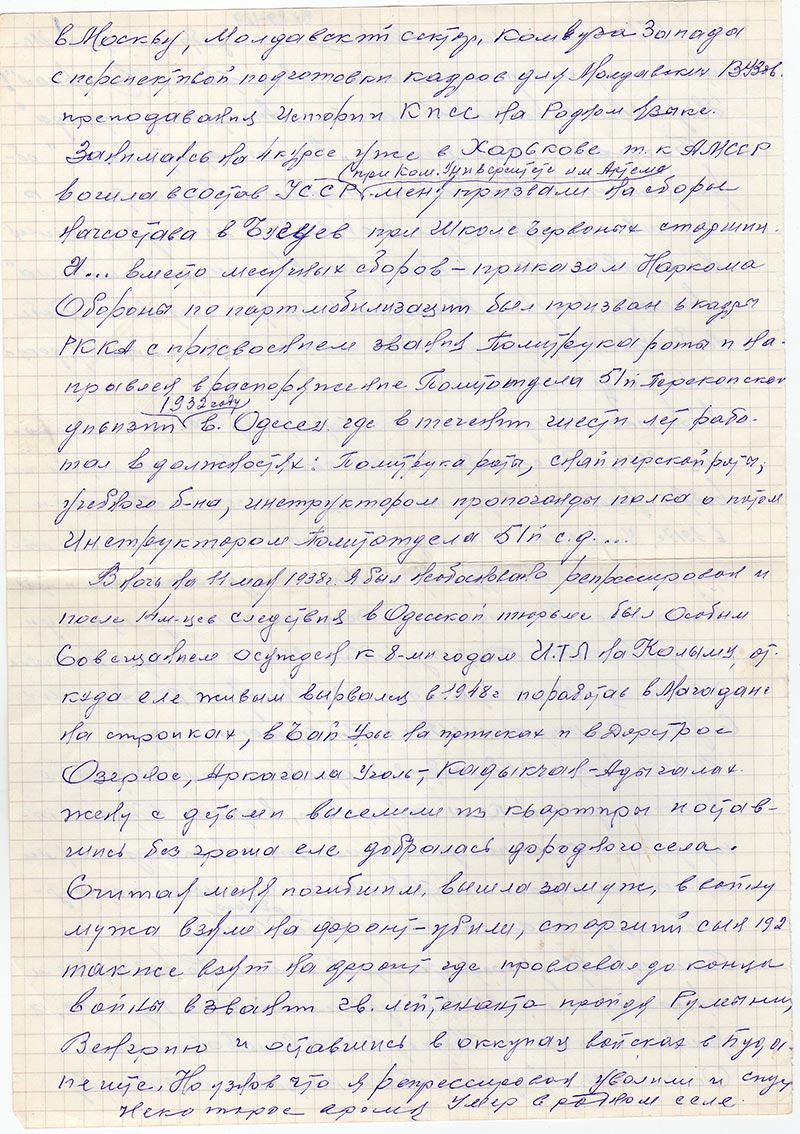 в Москву, Молдавский сектор, Комвуза Запада
с перспективой подготовки кадров для Молдавских ВУЗов.
преподавания истории КПСС на Родном языке.
Занимаясь на 4 курсе уже в Харькове т.к АМССР
(при Ком. Университете им Артема
вошла в состав УССР, меня призвали на сборы
начсостава в при Школе Червоных старшин.
И... вместо месячных сборов – приказом Наркома
Обороны по партмобилизации был призван в кадры
РККА с присвоением звания Политрука роты и на-
правлен в распоряжение Политотдела 51й Перекопской
1932 году
дивизии в. Одессу. где в течении шести лет рабо-
тал в должностях: Политрука роты, снайперской роты,
учебного б-на, инструктором пропоганды полка а потом
Инструктором Политотдела 51й с.д. ...
В ночь на 11 мая 1938г. я был необоснованно репрессирован и
после м-цев следствия в Одесской тюрьме был Особым
Совещанием осужден к 8-ми годам И.Т.Л на Колыму, от-
куда еле живым вырвался в 1948г поработав в Магадане
на стройках, в Бай Урье на приисках и в Дорстрое
Озерное, Аркагала Уголь-, Кадыкчан-Адыгалах.
жену с детьми выселили из квартиры и остав-
шись без гроша еле добралась до родного села.
Считая меня погибшим, вышла замуж, в войну
мужа взяли на фронт-убили, старший сын 192
также взят на фронт где провоевал до конца
войны в звании гв. лейтенанта пройдя Румынию,
Венгрию и оставшись в оккупац войсках в Буда-
пеште. Но узнав что я репрессирован уволили и спустя
некоторое время Умер в родном селе.